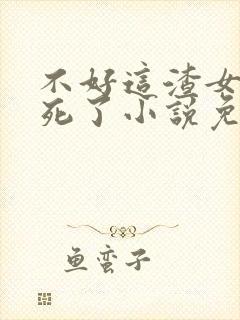 不好這渣女
死了小説免
鱼蛮子